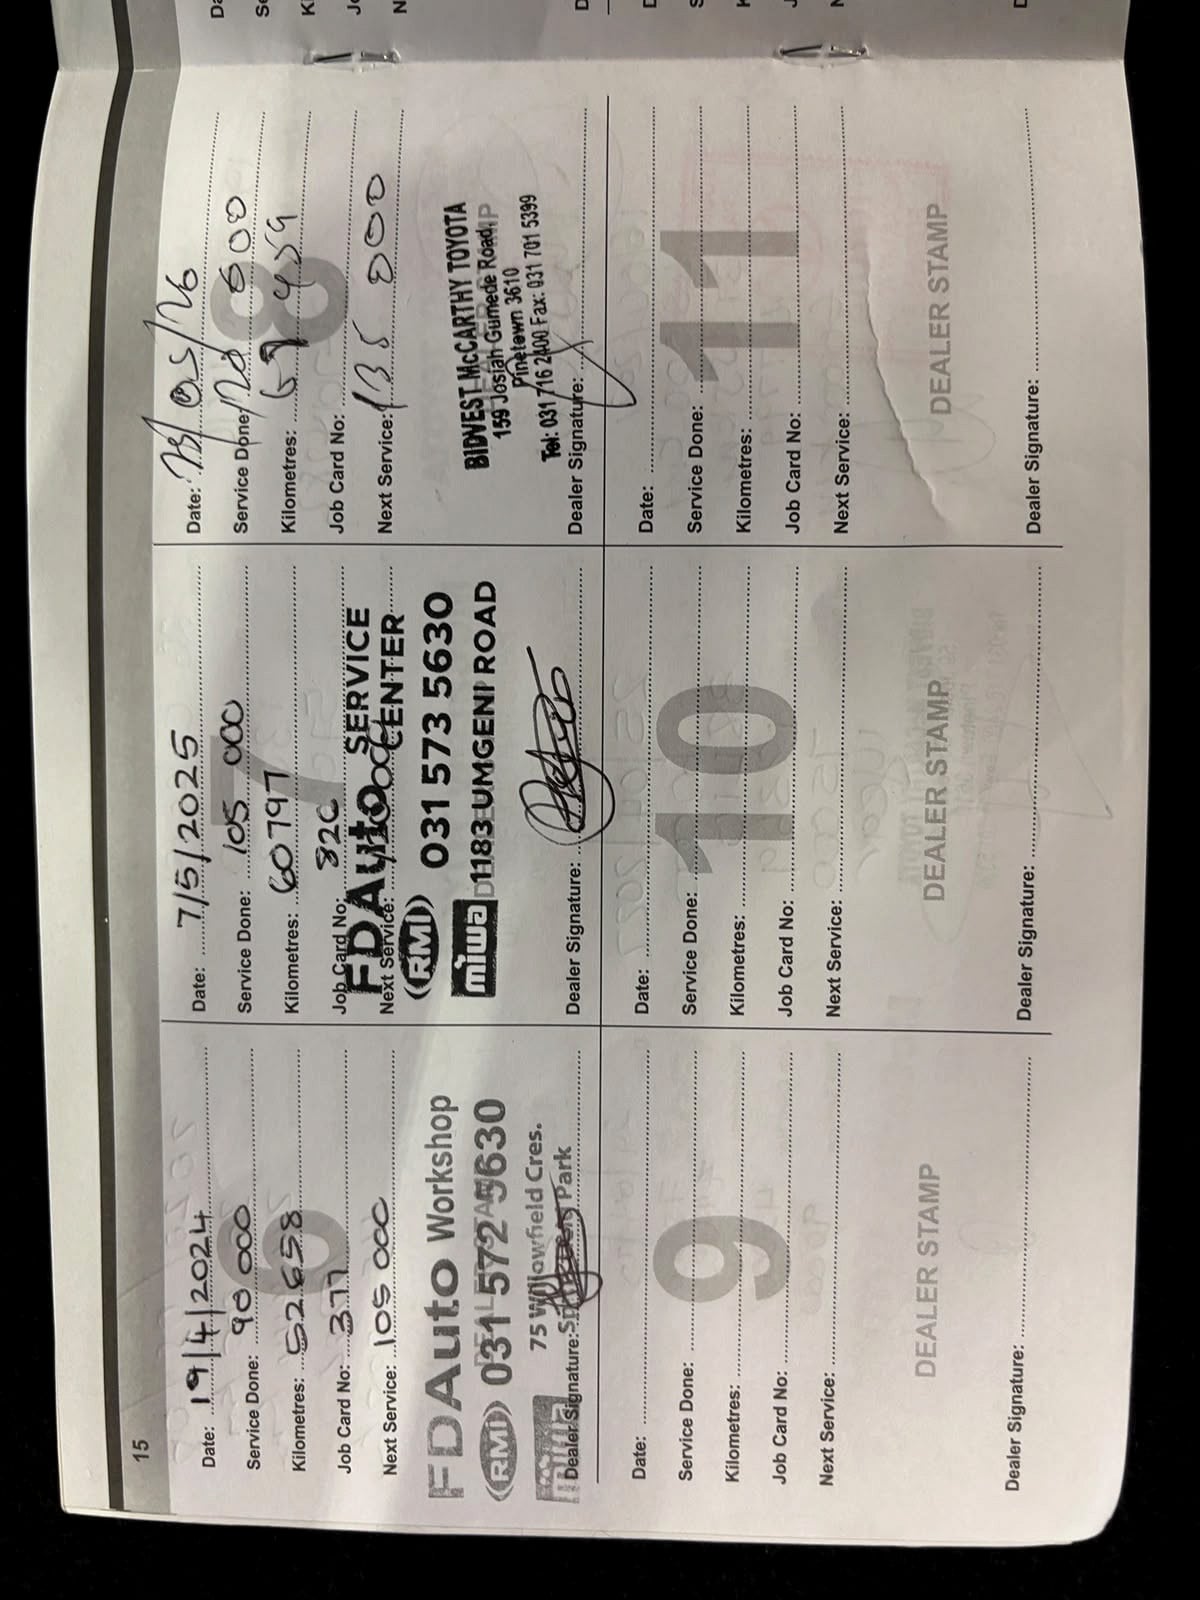 15
6
Date: 19/4/2024
Service Done: 90 000
Kilometres: 52658
Job Card No: 377
Next Service: 105 000
FDAuto Workshop
(RMI) 031 572 5630
75 Willowfield Cres.
miwa Park
Dealer Signature:
7
Date: 7/5/2025
Service Done: 105 000
Kilometres: 60797
Job Card No: 826
Next Service:
FDAuto SERVICE CENTER
(RMI) 031 573 5630
miwa 1183 UMGENI ROAD
Dealer Signature:
8
Date: /05/26
Service Done: 120 000
Kilometres:
Job Card No:
Next Service: 135 000
BIDVEST McCARTHY TOYOTA
159 Josiah Gumede Road,
Pinetown 3610
Tel: 031 716 2400 Fax: 031 701 5399
Dealer Signature:
9
Date:
Service Done:
Kilometres:
Job Card No:
Next Service:
DEALER STAMP
Dealer Signature:
10
Date:
Service Done:
Kilometres:
Job Card No:
Next Service:
DEALER STAMP
Dealer Signature:
11
Date:
Service Done:
Kilometres:
Job Card No:
Next Service:
DEALER STAMP
Dealer Signature: